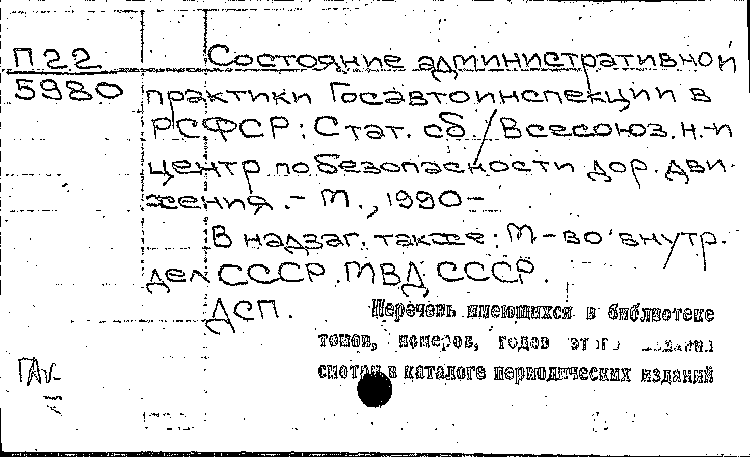 П22
5980
Состояние административной
практики Госавтоинспекции в
РСФСР: Стат. сб. / Всесоюз. н.-и
центр по безопасности дор. дви-
жения. - М., 1990-
В надзаг. также: М-во внутр.
дел СССР. МВД СССР.
ДСП.
Перечень имеющихся в библиотеке
томов, номеров, годов этого издания
смотри в каталоге периодических изданий